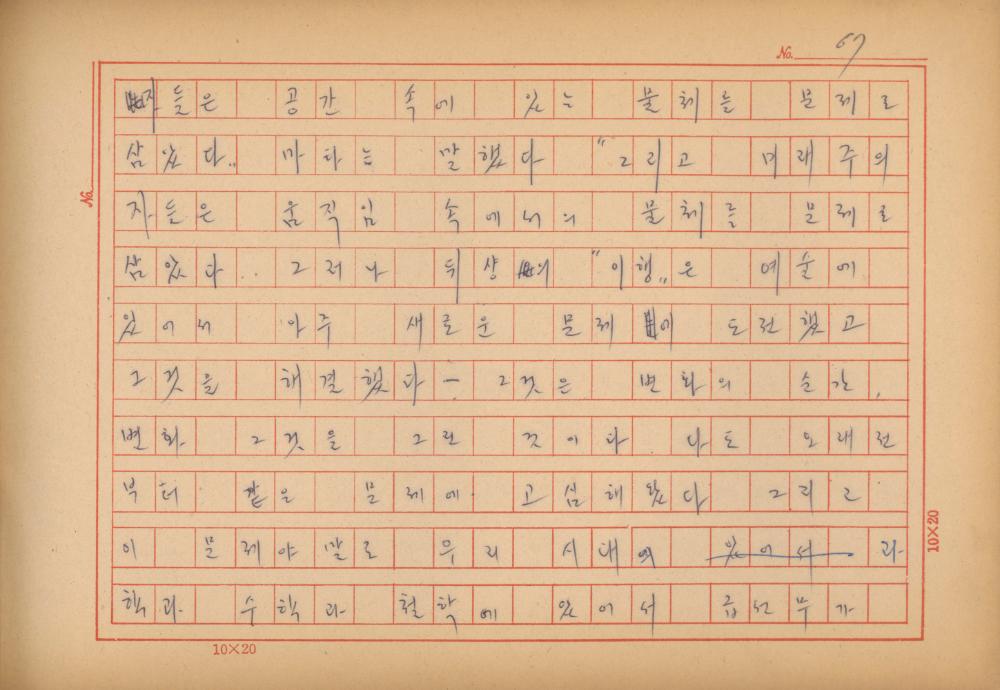 No. 67
자들은 공간 속에 있는 물체를 문제로
삼았다„ 마타는 말했다 “그리고 미래주의
No.
자들은 움직임 속에서의 물체를 문제로
삼았다. 그러나 뒤샹의 “이행„은 예술에
있어서 아주 새로운 문제에 도전했고
그것을 해결했다— 그것은 변화의 순간,
변화 그것을 그린 것이다 나도 오래전
부터 같은 문제에 고심해 왔다 그리고
이 문제야말로 우리 시대의 있어서 과
학과 수학과 철학에 있어서 급선무가
10×20
10×20